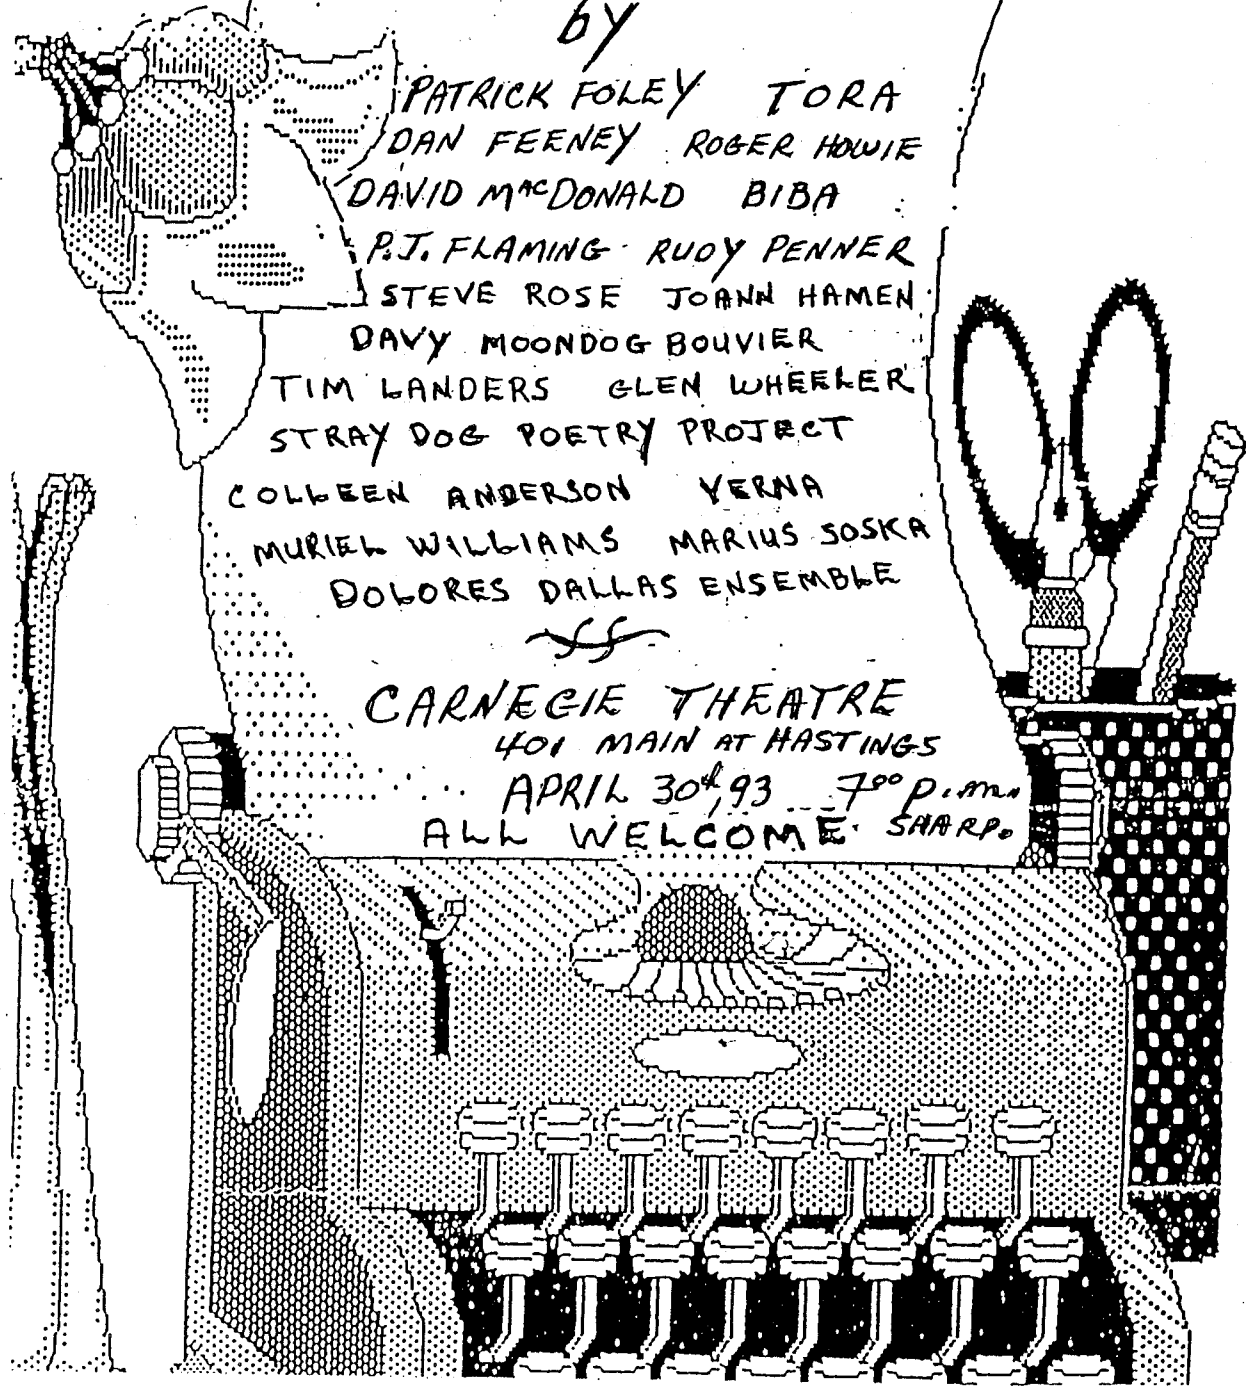 by
PATRICK FOLEY TORA
DAN FEENEY ROGER HOWIE
DAVID MacDONALD BIBA
P.J. FLAMING RUDY PENNER
STEVE ROSE JOANN HAMEN
DAVY MOONDOG BOUVIER
TIM LANDERS GLEN WHEELER
STRAY DOG POETRY PROJECT
COLLEEN ANDERSON VERNA
MURIEL WILLIAMS MARIUS SOSKA
DOLORES DALLAS ENSEMBLE
CARNEGIE THEATRE
401 MAIN AT HASTINGS
APRIL 30th, 93 7 00 p.m.
ALL WELCOME SHARP.